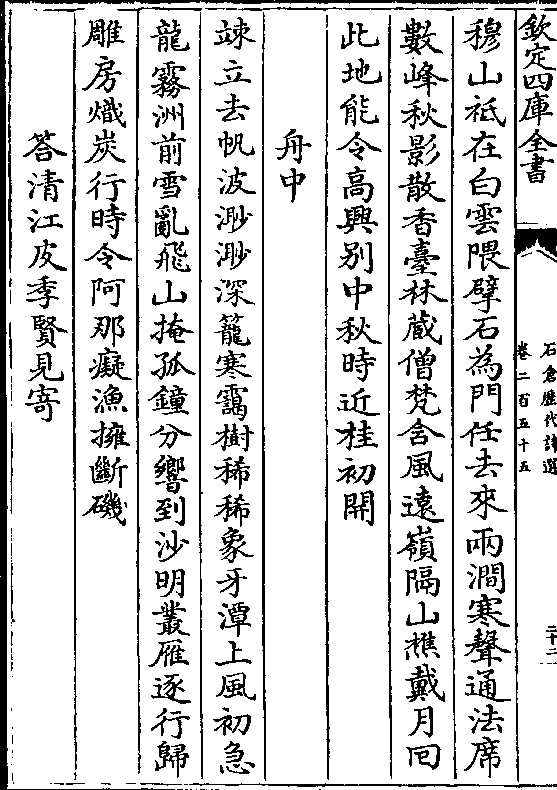 欽定四庫全書
石倉歷代詩選
卷二百五十五
二十二
穆山祗在白雲隈擘石為門任去來兩澗寒聲通法席
數峰秋影散香臺林藏僧梵含風遠嶺隔山樵戴月回
此地能令高興别中秋時近桂初開
舟中
竦立去帆波渺渺深籠寒靄樹稀稀象牙潭上風初急
龍霧洲前雪亂飛山掩孤鐘分響到沙明叢雁逐行歸
雕房熾炭行時令阿那癡漁擁斷磯
答清江皮季賢見寄